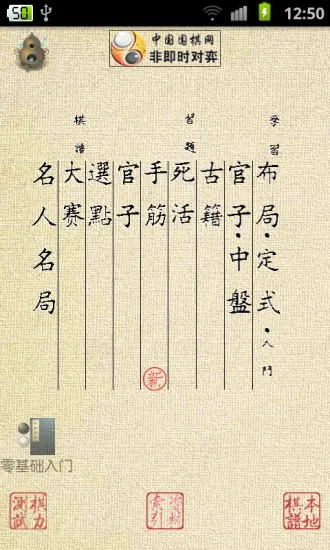 50
12:50
中国围棋网
非即时对弈
学習
布局·定式·入門
官子·中盤
古籍
習題
死活
手筋
新
官子
選點
棋譜
大赛
名人名局
零基础入门
棋力測試
本地棋譜